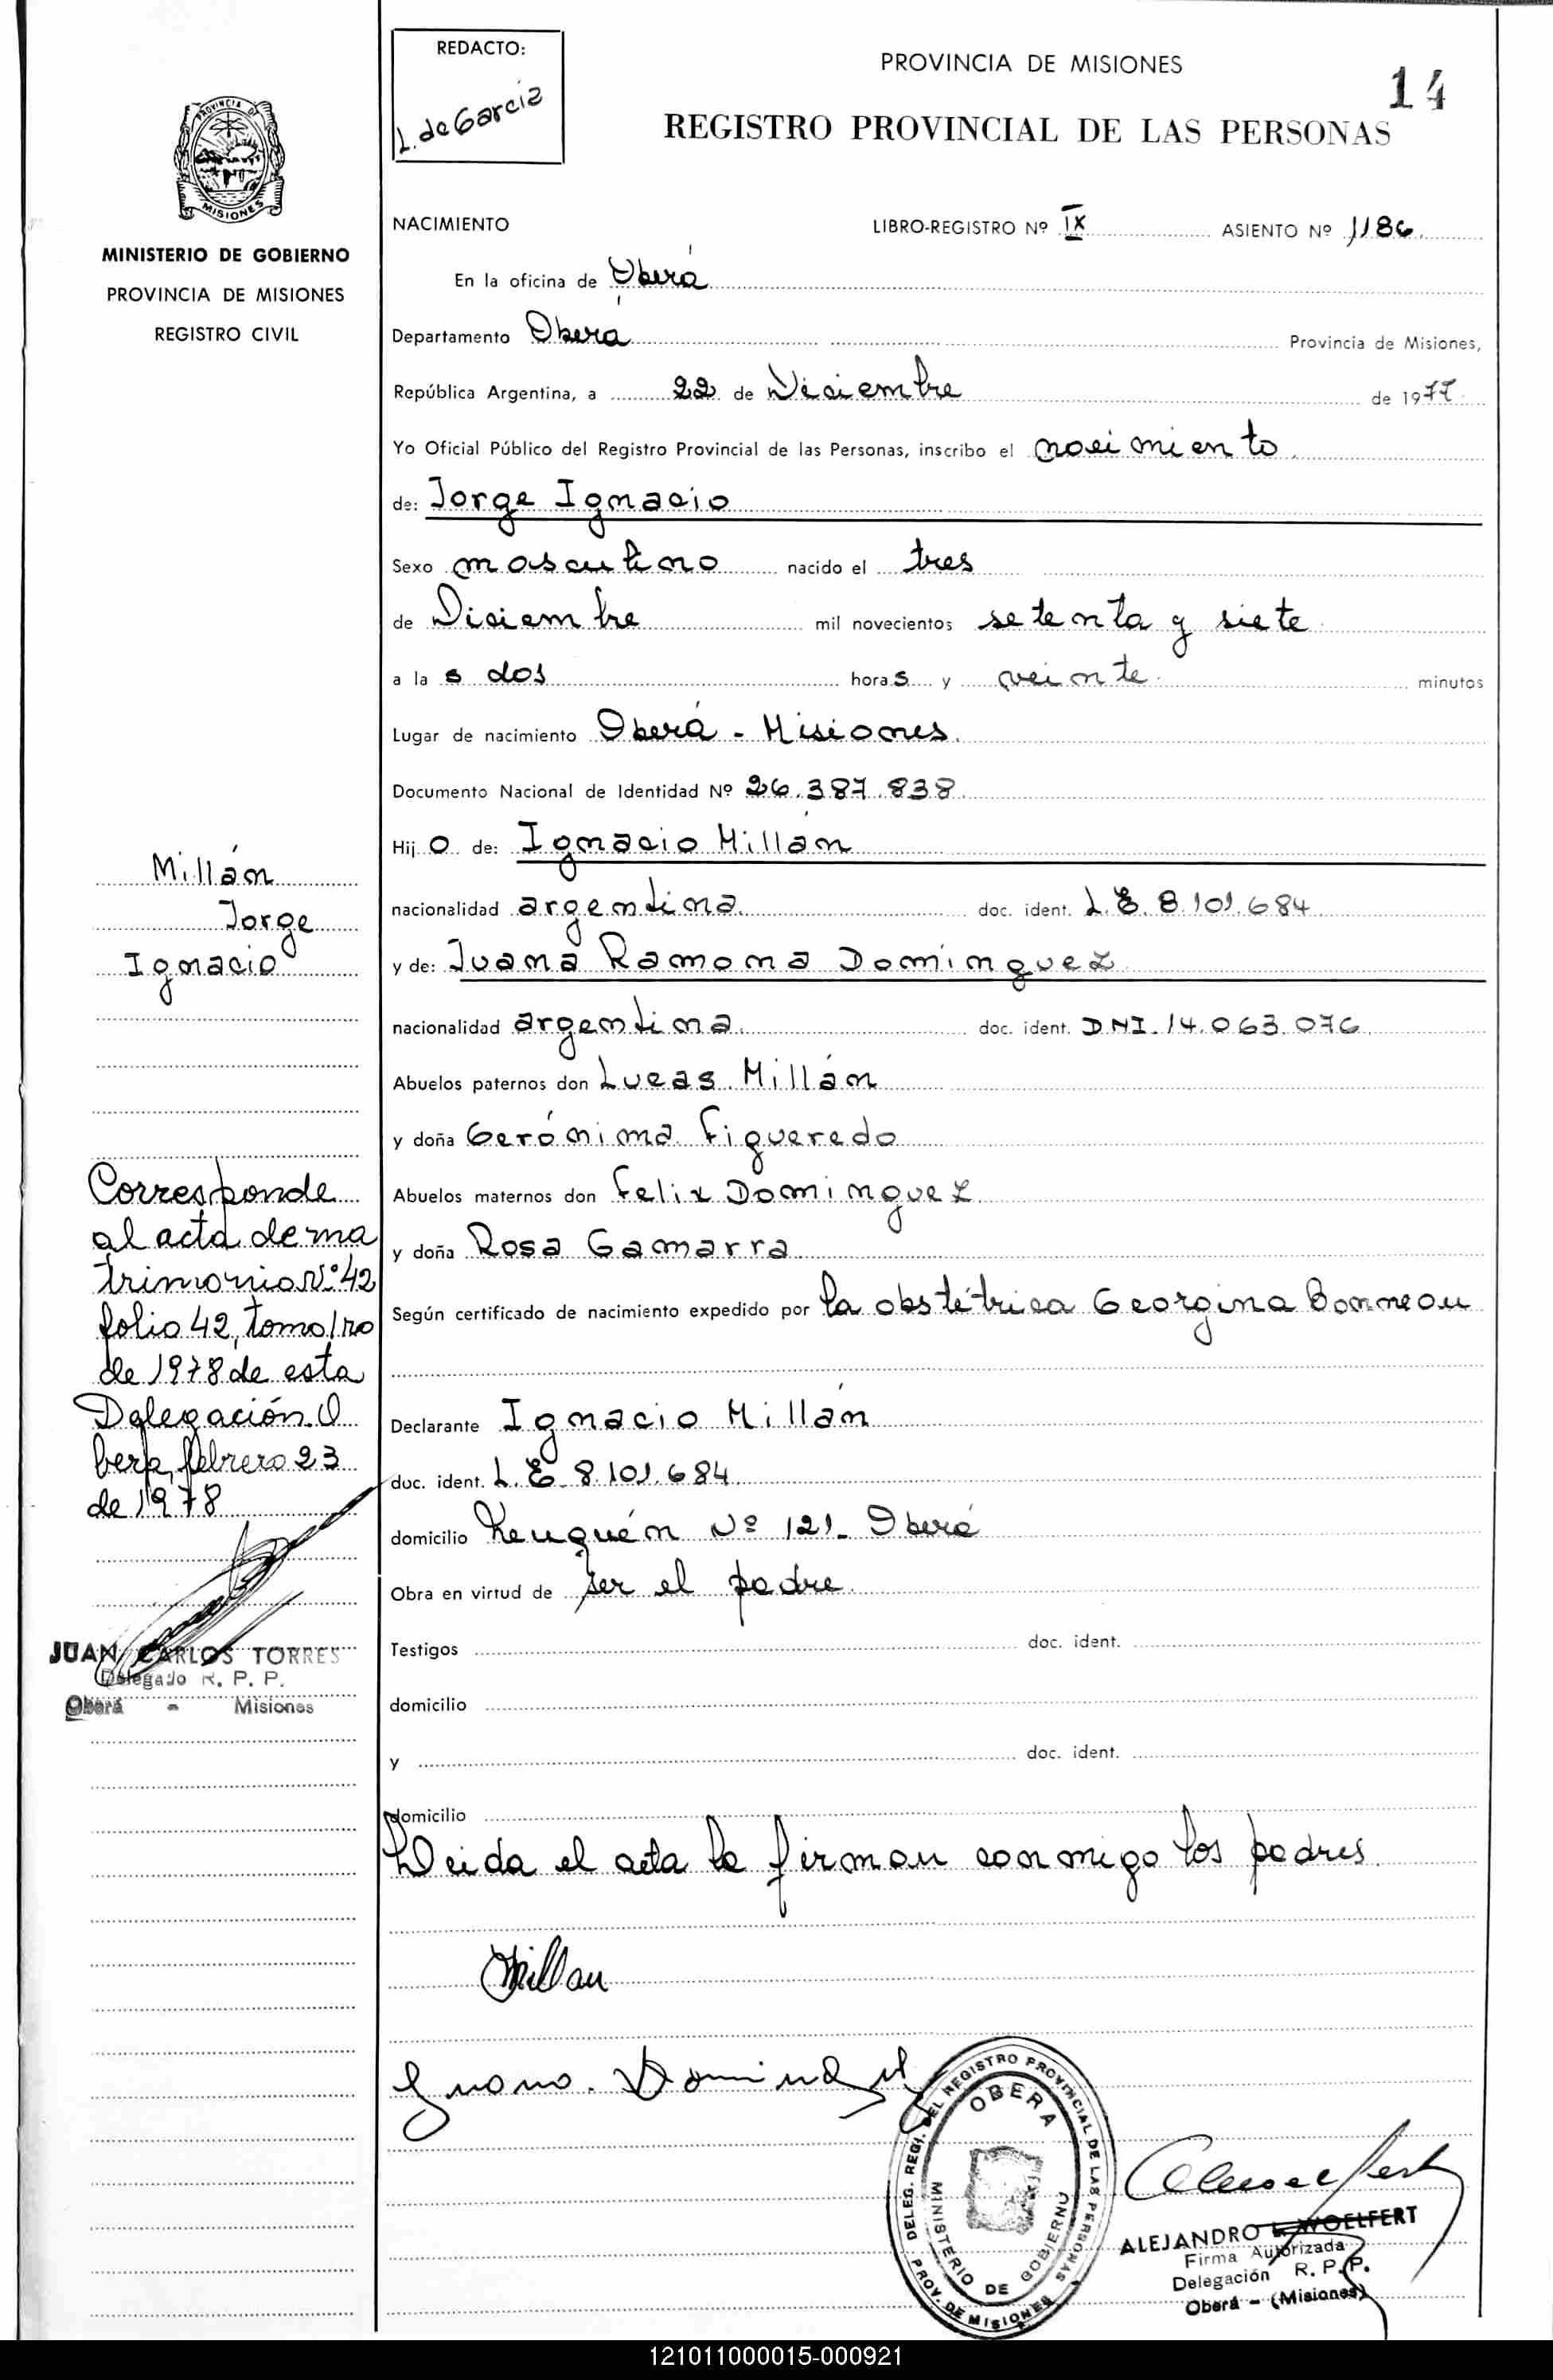 REDACTO:
L. de Garcia
PROVINCIA DE MISIONES
14
REGISTRO PROVINCIAL DE LAS PERSONAS
PROVINCIA DE
MISIONES
MINISTERIO DE GOBIERNO
PROVINCIA DE MISIONES
REGISTRO CIVIL
NACIMIENTO LIBRO-REGISTRO Nº IX ASIENTO Nº 1186
En la oficina de Oberá
Departamento Oberá Provincia de Misiones,
República Argentina, a 22 de Diciembre de 1977
Yo Oficial Público del Registro Provincial de las Personas, inscribo el nacimiento
de: Jorge Ignacio
Sexo masculino nacido el tres
de Diciembre mil novecientos setenta y siete
a la s dos hora s y veinte minutos
Lugar de nacimiento Oberá - Misiones.
Documento Nacional de Identidad Nº 26.387.838.
Hij o de: Ignacio Millán
nacionalidad argentina doc. ident. L.E. 8.101.684
y de: Juana Ramona Dominguez
nacionalidad argentina doc. ident. DNI. 14.063.076
Abuelos paternos don Lucas Millán
y doña Gerónima Figueredo
Abuelos maternos don Felix Dominguez
y doña Rosa Gamarra
Según certificado de nacimiento expedido por la obstétrica Georgina Bonneau
Declarante Ignacio Millán
doc. ident. L.E. 8.101.684
domicilio Neuquén Nº 121- Oberá
Obra en virtud de ser el padre
Testigos doc. ident.
domicilio
y doc. ident.
domicilio
Leida el acta la firman conmigo los padres
Millan
Juana. Dominguez
Millán
Jorge
Ignacio
Corresponde
al acta de ma
trimonio Nº 42
folio 42, tomo 1ro
de 1978 de esta
Delegación. O
bera, febrero 23
de 1978
JUAN CARLOS TORRES
Delegado R. P. P.
Oberá - Misiones
DELEG. REGI. DEL REGISTRO PROVINCIAL DE LAS PERSONAS
OBERA
MINISTERIO DE GOBIERNO
PROV. DE MISIONES
ALEJANDRO L. WOELFERT
Firma Autorizada
Delegación R. P. P.
Oberá - (Misiones)
121011000015-000921